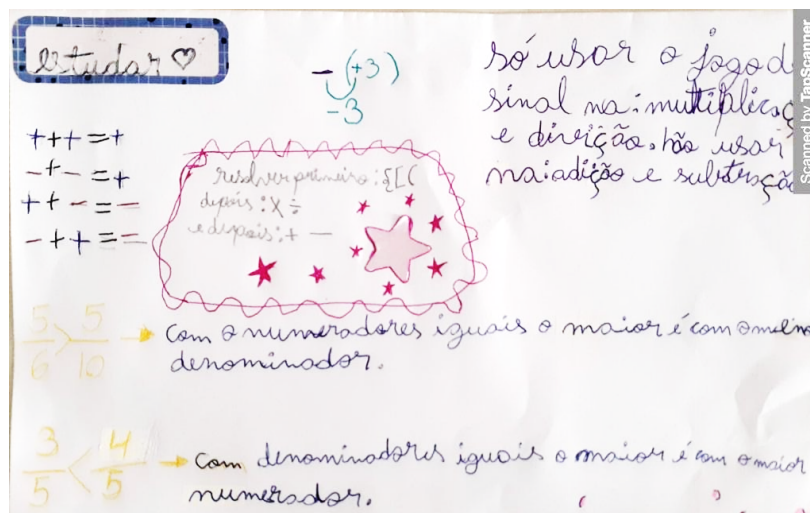 estudar ♡
-(+3)
-3
só usar o jogo d
sinal na: multiplicaç
e divição. não usar
na: adição e subtração
+++=+
-+-=+
++-=-
-++=-
resolver primeiro: {[(
depois: X ÷
e depois: + -
5/6 > 5/10 → Com o numeradores iguais o maior é com o meno
denominador.
3/5 < 4/5 → Com denominadores iguais o maior é com o maior
numerador.
Scanned by TapScanner